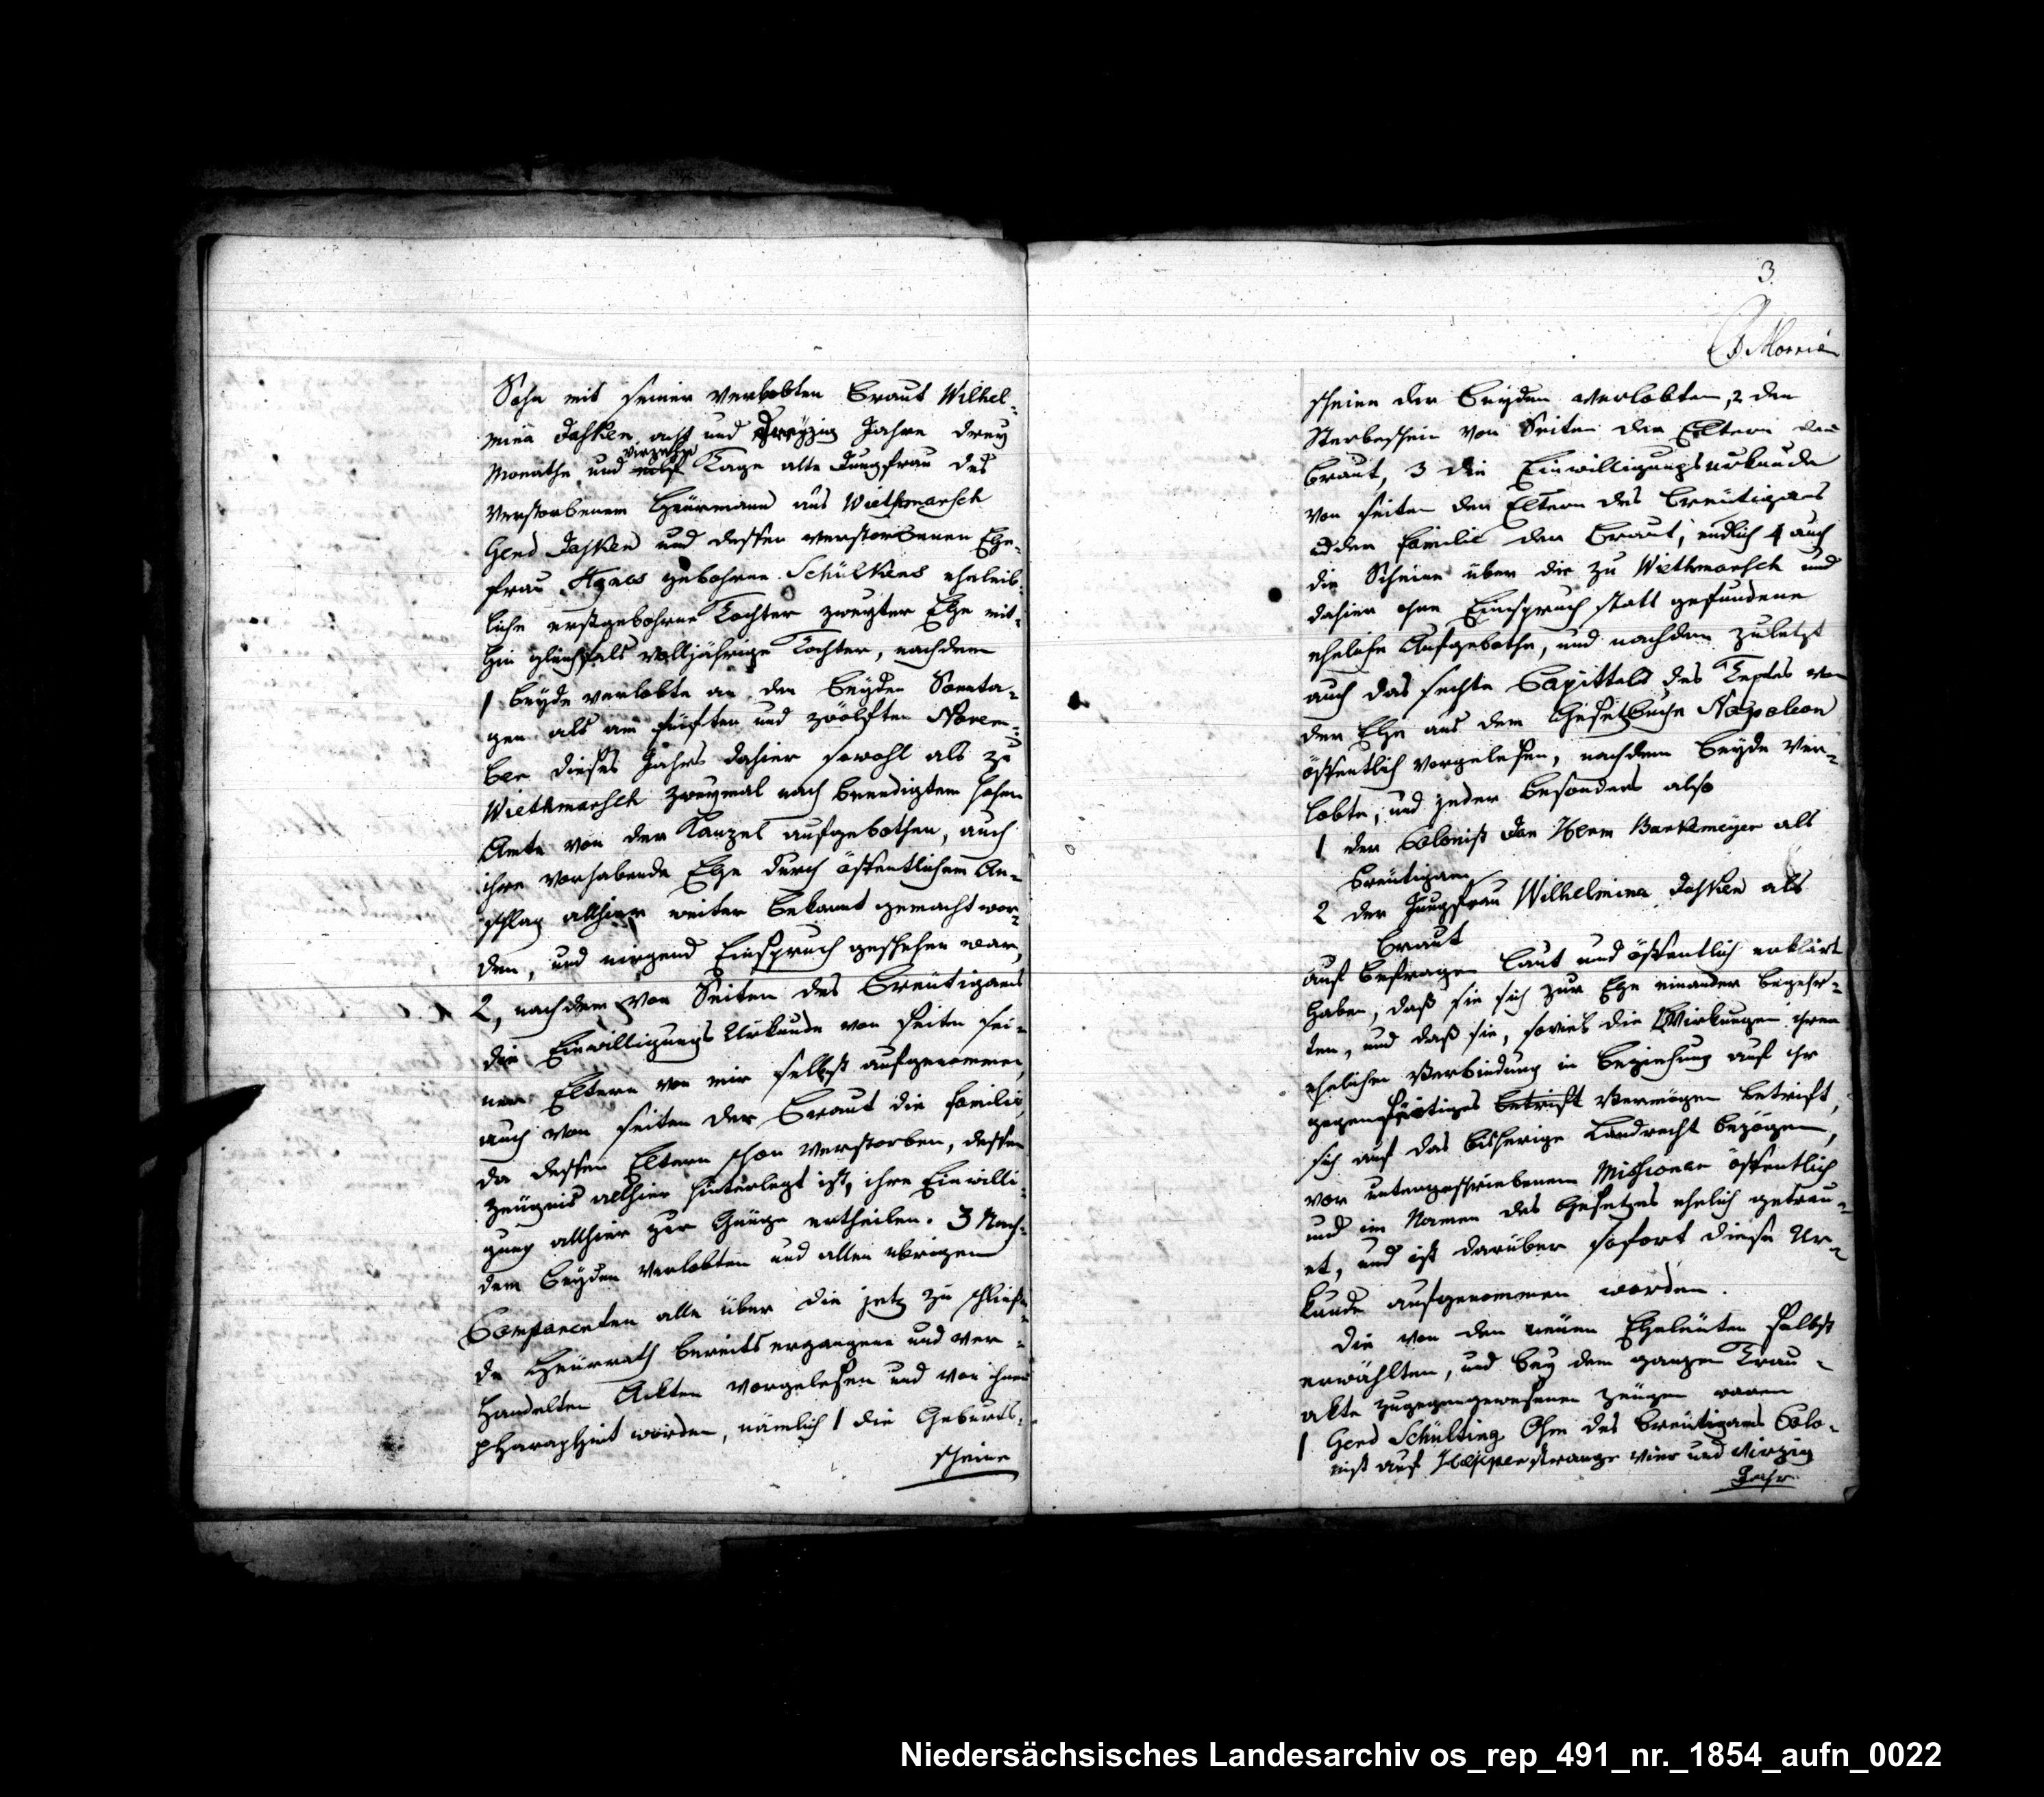 Sohn mit seiner verlobten Braut Wilhel-
mina Dasken acht und dreyzig Jahre drey
vierzehn
Monathe und Tage alte Jungfrau des
verstorbenem Heürmann aus Wiethmarsch
Gerd Dasken und dessen verstorbenen Ehe-
frau Agnes gebohrne Schülkens eheleib-
liche erstgebohrne Tochter zweyter Ehe mit-
hin gleichfals volljährige Tochter, nachdem
1 beyde verlobte an den beyden Sonnta-
gen als am fünften und zwölften Novem-
ber dieses Jahrs dahier sowohl als zu
Wiethmarsch zweymal nach beendigtem hohen
Amte von der Kanzel aufgebothen, auch
ihre vorhabende Ehe durch öffentlichem An-
schlag allhier weiter bekannt gemacht wor-
den, und nirgend Einspruch geschehen war,
2, nachdem von Seiten des Breütigams
die Einwilligungs Urkunde von seiten sei-
ner Eltern von mir selbst aufgenommen,
auch von seiten der Braut die familie,
da dessen Eltern schon verstorben, dessen
Zeügnis allhier hinterlegt ist, ihre Einwilli-
gung allhier zur Genüge ertheilen. 3 Nach-
dem beyden verlobten und allen übrigen
Comparenten alle über die jetz zu schließen-
de Heürrath bereits ergangene und ver-
handelten Ackten vorgelesen und von ihnen
pharaphirt worden, nämlich 1 die Geburts-
scheine
3.
Morrien
scheine der beyden verlobten, 2 den
Sterbeschein von Seiten der Eltern der
Braut, 3 die Einwilligungsurkunde
von seiten der Eltern des Breütigams
und der familie der Braut; endlich 4 auch
die Scheine über die zu Wiethmarsch und
dahier ohne Einspruch statt gefundene
eheliche Aufgebothe, und nachdem zuletzt
auch das sechte Capittels des Textes von
der Ehe aus dem Gesetzbuche Napoleon
öffentlich vorgelesen, nachdem beyde Ver-
lobte, und jeder besonders also
1 der Colonist Jan Herm Barkemeyer als
Breütigam
2 der Jungfrau Wilhelmina Dasken als
Braut
auf befragen laut und öffentlich erklärt
haben, daß sie sich zur Ehe einander begehr-
ten, und daß sie, soviel die Wirkungen ihrer
ehelichen Verbindung in beziehung auf ihr
gegenseitiges betrift Vermögen betrift,
sich auf das bisherige Landrecht bezögen,
vor untengeschriebenem Missionar öffentlich
und im Namen des Gesetzes ehelich getrau-
et, und ist darüber sofort diese Ur-
kunde aufgenommen worden.
Die von den neüen Eheleüten selbst
erwählten, und bey dem ganzen Trau-
akte zugegengewesenen zeügen waren
1 Gerd Schülting Ohm des Breütigams Colo-
nist auf vier und vierzig
Jahr
Niedersächsisches Landesarchiv os_rep_491_nr._1854_aufn_0022